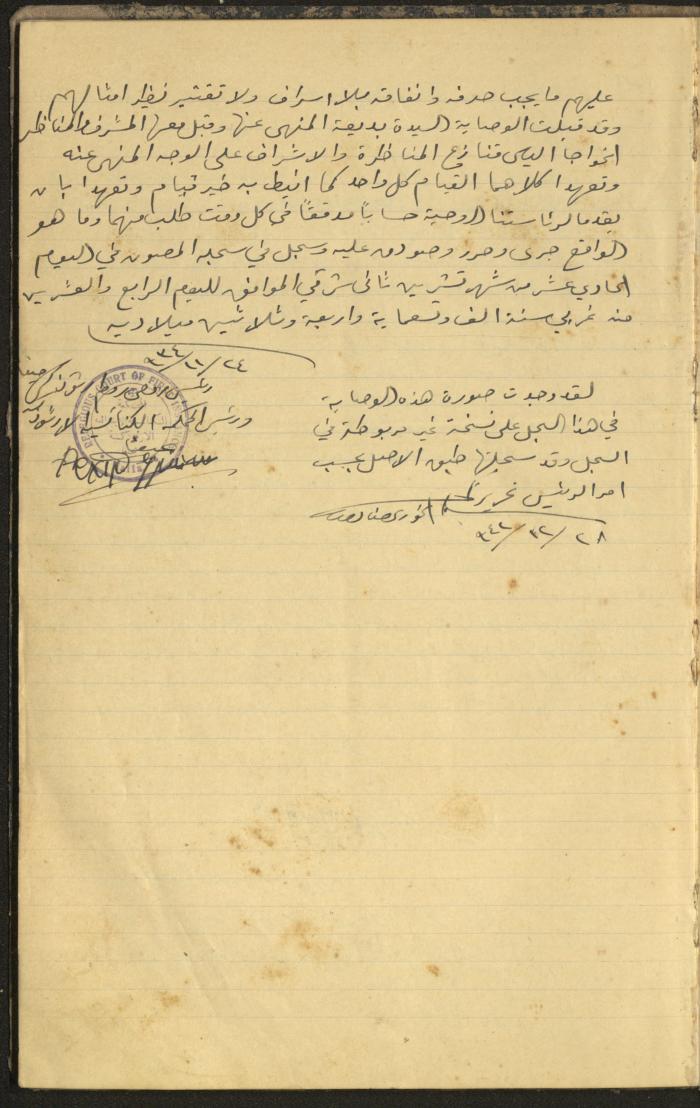 عليهم ما يجب صرفه وانفاقه بلا اسراف ولا تقتير نظير امثالهم
وقد قبلت الوصاية السيدة بديعة المنهى عنها وقبل معها المشرف والمناظر
الخواجا الياس قنازع المناظرة والاشراف على الوجه المنهى عنه
وتعهدا كلاهما القيام كل واحد كما انيط به خير قيام وتعهدا بان
يقدما لرئاستنا الروحية حسابًا مدققًا في كل وقت طلب منهما وما هو
الواقع جرى وحرر وصودق عليه وسجل في سجله المصون في اليوم
الحادي عشر من شهر تشرين ثاني شرقي الموافق لليوم الرابع والعشرين
منه غربي سنة الف وتسعماية واربعة وثلاثين ميلادية
٢٤/١١/٩٣٤
ورئيس المحكمة الكنائسية الارثوذكسية
RELIGIOUS COURT OF FIRST
لقد وجدت صورة هذه الوصاية
في هذا السجل على نسخة غير مربوطة في
السجل وقد سجلتها طبق الاصل بحسب
امر الرئيس تحريرًا
الخوري
٢٨/١٢/٩٤٢